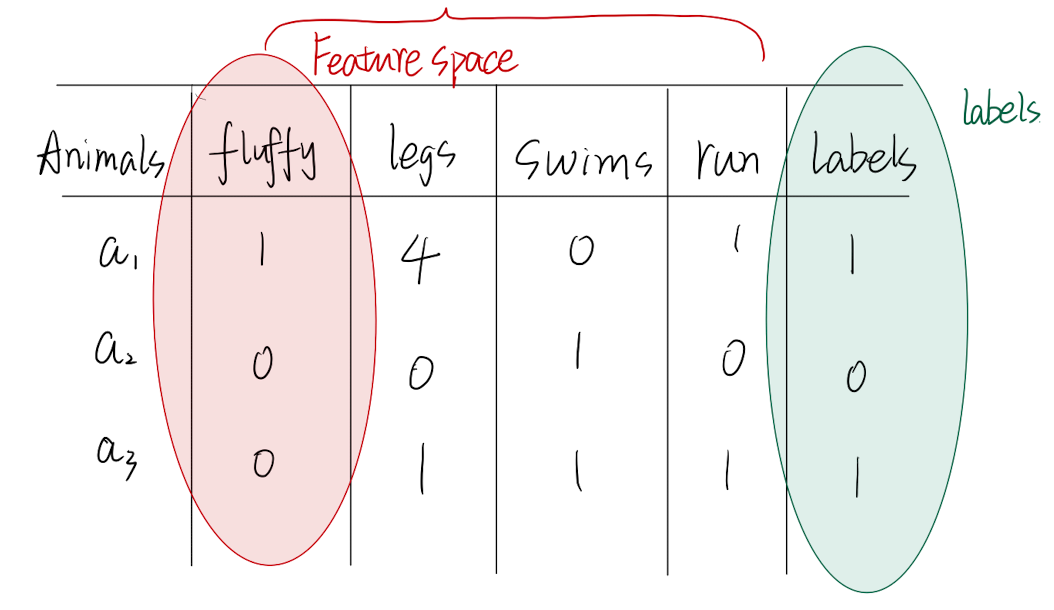 Feature space
labels
Animals fluffy legs swims run labels
a₁ 1 4 0 1 1
a₂ 0 0 1 0 0
a₃ 0 1 1 1 1